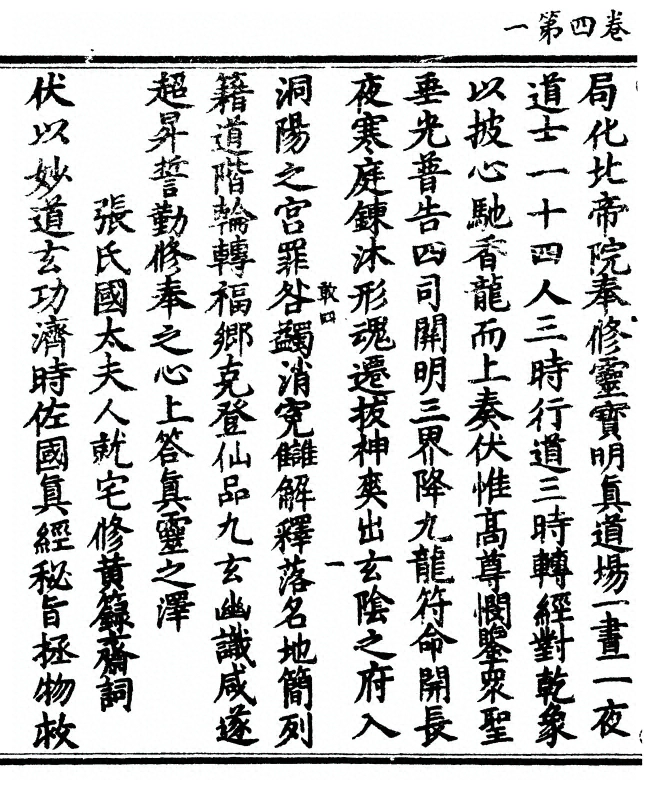 卷四第一
局化北帝院奉修靈寶明真道場一晝二夜
道士一十四人三時行道三時轉經對乾象
以披心馳香龍而上奏伏惟高尊憫鑒衆聖
垂光普告四司開明三界降九龍符命開長
夜寒庭鍊沐形魂遷拔神爽出玄陰之府入
敢四 一
洞陽之宮罪咎蠲消寃讎解釋落名地簡列
籍道階輪轉福鄉克登仙品九玄幽識咸遂
超昇誓勤修奉之心上答真靈之澤
張氏國太夫人就宅修黃籙齋詞
伏以妙道玄功濟時佐國真經秘旨拯物救